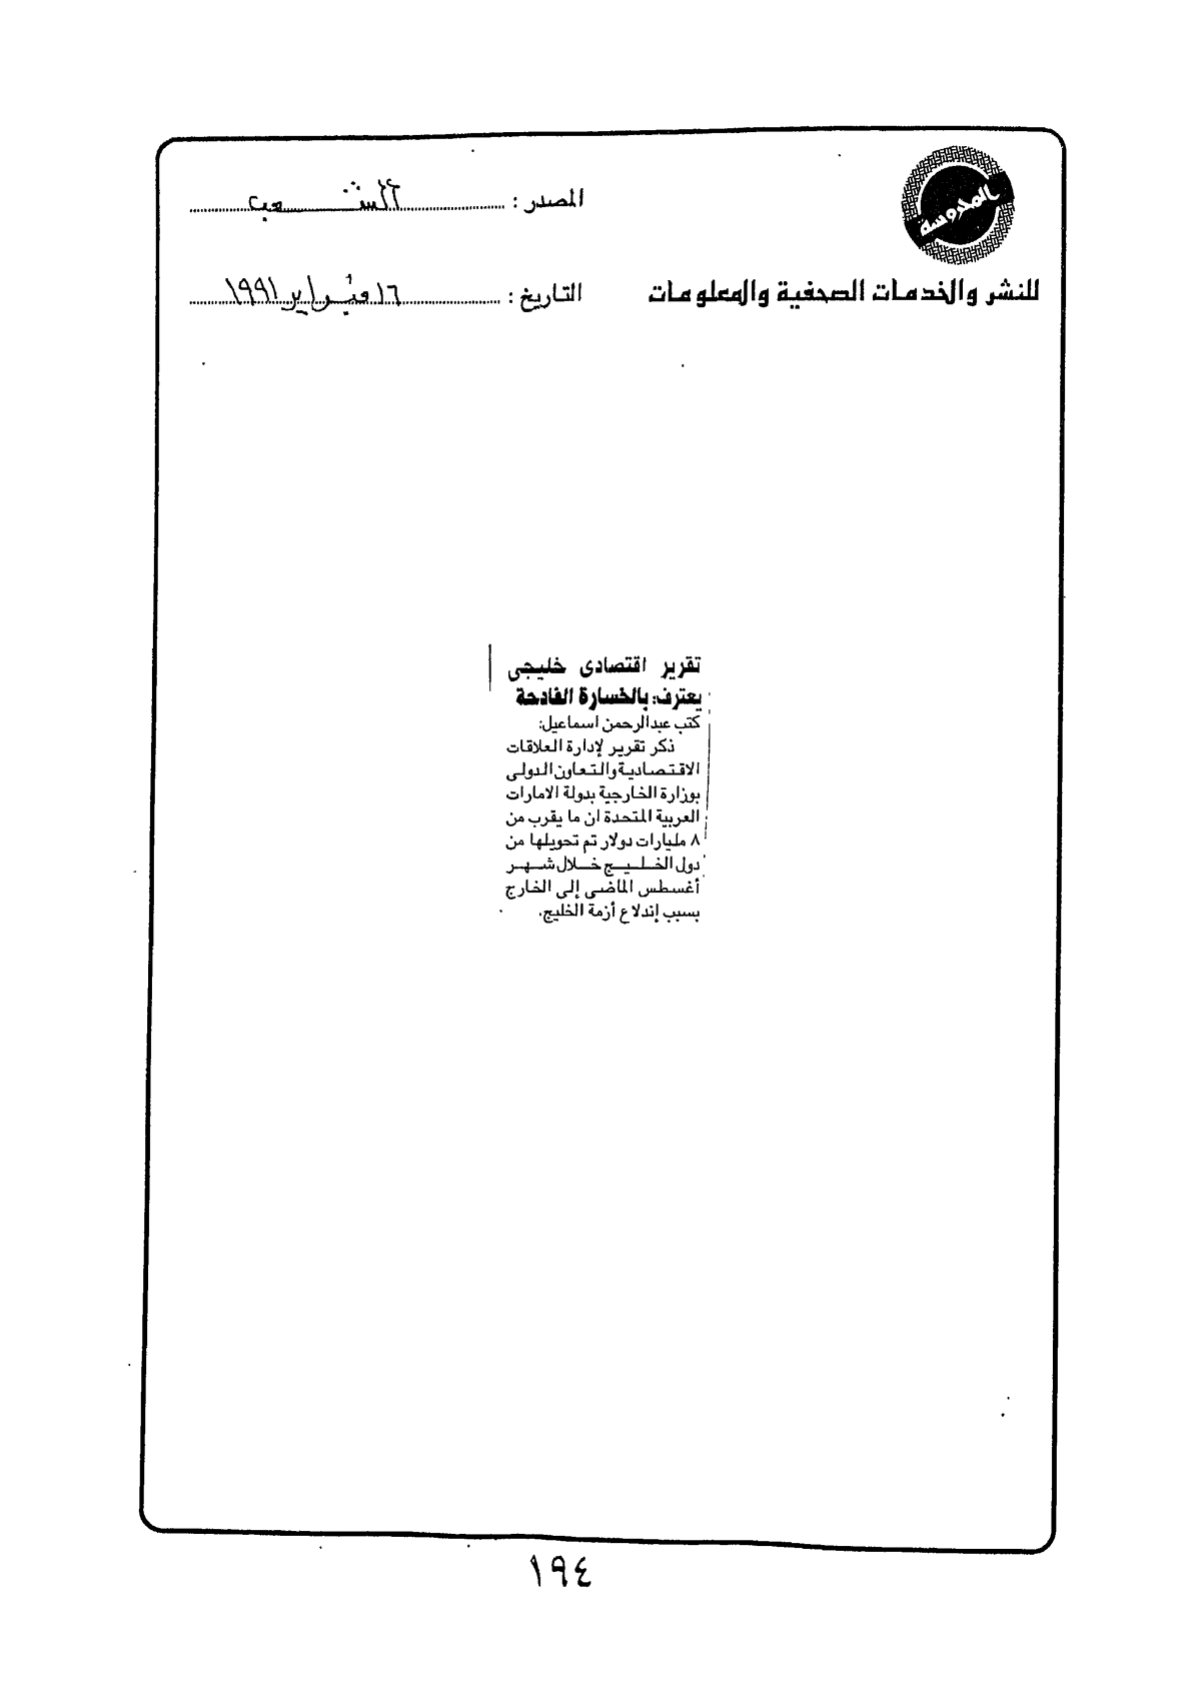 المدوسة
للنشر والخدمات الصحفية والمعلومات
المصدر : الشعب
التاريخ : ١٦ فبراير ١٩٩١
تقرير اقتصادى خليجى
يعترف: بالخسارة الفادحة
كتب عبدالرحمن اسماعيل:
ذكر تقرير لإدارة العلاقات
الاقتصادية والتعاون الدولى
بوزارة الخارجية بدولة الامارات
العربية المتحدة ان ما يقرب من
٨ مليارات دولار تم تحويلها من
دول الخليج خلال شهر
أغسطس الماضى إلى الخارج
بسبب إندلاع أزمة الخليج.
١٩٤